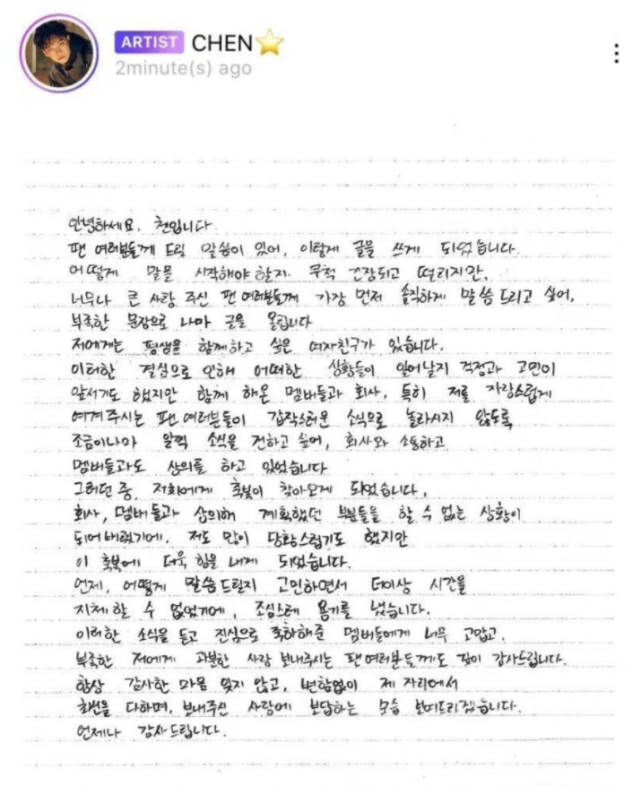 ARTIST CHEN
2minute(s) ago
안녕하세요. 첸입니다
팬 여러분들께 드릴 말씀이 있어, 이렇게 글을 쓰게 되었습니다.
어떻게 말을 시작해야 할지 무척 긴장되고 떨리지만,
너무나 큰 사랑 주신 팬 여러분들께 가장 먼저 솔직하게 말씀드리고 싶어,
부족한 문장으로 나마 글을 올립니다
저에게는 평생을 함께하고 싶은 여자친구가 있습니다.
이러한 결심으로 인해 어떠한 상황들이 일어날지 걱정과 고민이
앞서기도 했지만 함께 해온 멤버들과 회사, 특히 저를 자랑스럽게
여겨주시는 팬 여러분들이 갑작스러운 소식으로 놀라시지 않도록
조금이나마 일찍 소식을 전하고 싶어, 회사와 소통하고
멤버들과도 상의를 하고 있었습니다
그러던 중, 저희에게 축복이 찾아오게 되었습니다.
회사, 멤버들과 상의해 계획했던 부분들을 할 수 없는 상황이
되어버렸기에, 저도 많이 당황스럽기도 했지만
이 축복에 더욱 힘을 내게 되었습니다.
언제, 어떻게 말씀드릴지 고민하면서 더이상 시간을
지체할 수 없었기에, 조심스레 용기를 냈습니다.
이러한 소식을 듣고 진심으로 축하해준 멤버들에게 너무 고맙고,
부족한 저에게 과분한 사랑 보내주시는 팬 여러분들께도 깊이 감사드립니다.
항상 감사한 마음 잊지 않고, 변함없이 제 자리에서
최선을 다하며, 보내주신 사랑에 보답하는 모습 보여드리겠습니다.
언제나 감사드립니다.